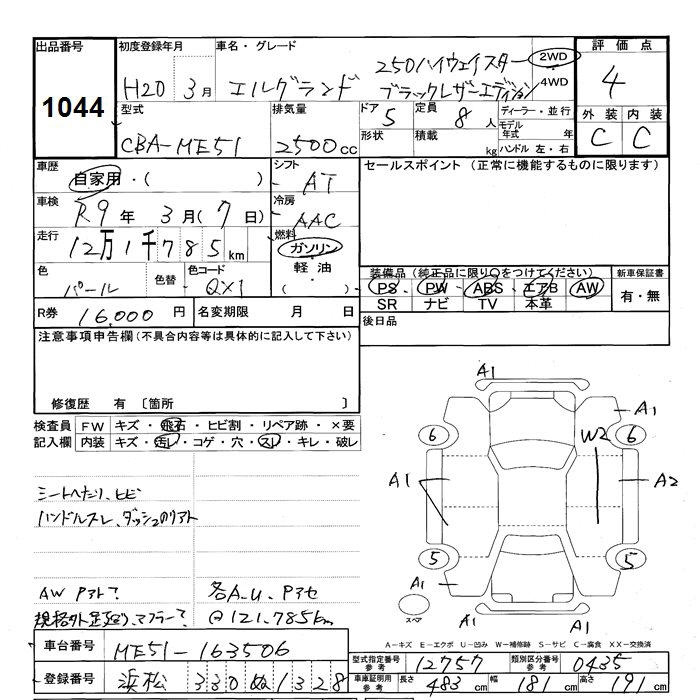 出品番号 初度登録年月 車名・グレード 評価点
1044 H20年3月 エルグランド 250ハイウェイスター 2WD 4
ブラックレザーエディション 4WD
型式 排気量 ドア 定員 ディーラー・並行 外装 内装
CBA-ME51 2500cc 5 8人 モデル年式 年 C C
形状 積載 kg ハンドル 左・右
車歴 シフト セールスポイント(正常に機能するものに限ります)
自家用・( ) AT
車検 冷房
R9年3月(7日) AAC
走行 燃料
12万1千785km ガソリン
軽油
色 色替 色コード ( ) 装備品(純正品に限り○をつけてください) 新車保証書
パール QX1 PS PW ABS エアB AW 有・無
SR ナビ TV 本革
R券 16,000円 名変期限 月 日 後日品
注意事項申告欄(不具合内容等は具体的に記入して下さい)
修復歴 有 〔箇所 〕
検査員 FW キズ・飛石・ヒビ割・リペア跡・×要
記入欄 内装 キズ・汚レ・コゲ・穴・スレ・キレ・破レ
A1
A1
6 6
W2
シートヘたり、ヒビ A1 A2
ハンドルスレ、ダッシュのリアト
5 5
A1
AW
各A.U.
@121,785km
スペア
A1 A1
A－キズ E－エクボ U－凹み W－補修跡 S－サビ C－腐食 XX－交換済
車台番号 ME51-163506
型式指定番号 参考 12757 類別区分番号 参考 0435
登録番号 浜松 330 ぬ 1328
車庫証明用 参考 長さ 483cm 幅 181cm 高さ 191cm